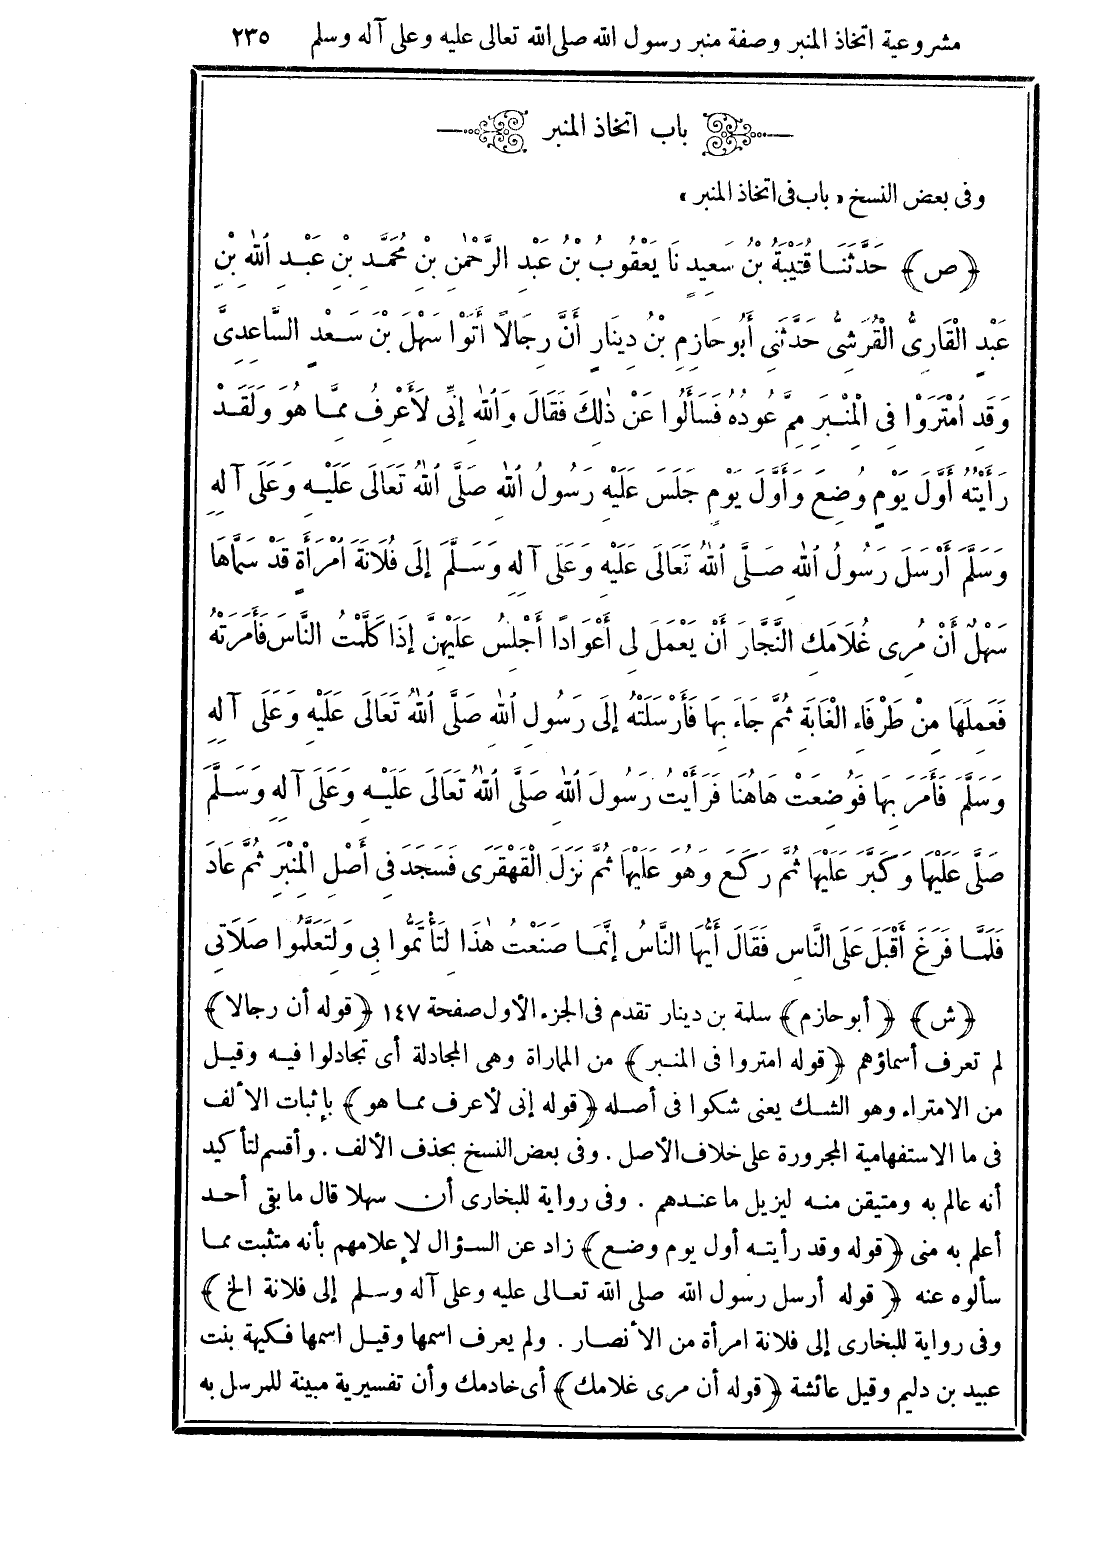 مشروعية اتخاذ المنبر وصفة منبر رسول الله صلى الله تعالى عليه وعلى آله وسلم ٢٣٥
باب اتخاذ المنبر
وفى بعض النسخ «باب فى اتخاذ المنبر»
﴿ص﴾ حَدَّثَنَا قُتَيْبَةُ بْنُ سَعِيدٍ نَا يَعْقُوبُ بْنُ عَبْدِ الرَّحْمٰنِ بْنِ مُحَمَّدِ بْنِ عَبْدِ ٱللهِ بْنِ
عَبْدٍ الْقَارِىُّ الْقُرَشِىُّ حَدَّثَنِى أَبُو حَازِمِ بْنُ دِينَارٍ أَنَّ رِجَالًا أَتَوْا سَهْلَ بْنَ سَعْدٍ السَّاعِدِىَّ
وَقَدِ ٱمْتَرَوْا فِى الْمِنْبَرِ مِمَّ عُودُهُ فَسَأَلُوا عَنْ ذٰلِكَ فَقَالَ وَٱللهِ إِنِّى لَأَعْرِفُ مِمَّا هُوَ وَلَقَدْ
رَأَيْتُهُ أَوَّلَ يَوْمٍ وُضِعَ وَأَوَّلَ يَوْمٍ جَلَسَ عَلَيْهِ رَسُولُ ٱللهِ صَلَّى ٱللهُ تَعَالَى عَلَيْهِ وَعَلَى آلِهِ
وَسَلَّمَ أَرْسَلَ رَسُولُ ٱللهِ صَلَّى ٱللهُ تَعَالَى عَلَيْهِ وَعَلَى آلِهِ وَسَلَّمَ إِلَى فُلَانَةَ ٱمْرَأَةٍ قَدْ سَمَّاهَا
سَهْلٌ أَنْ مُرِى غُلَامَكِ النَّجَّارَ أَنْ يَعْمَلَ لِى أَعْوَادًا أَجْلِسُ عَلَيْهِنَّ إِذَا كَلَّمْتُ النَّاسَ فَأَمَرَتْهُ
فَعَمِلَهَا مِنْ طَرْفَاءِ الْغَابَةِ ثُمَّ جَاءَ بِهَا فَأَرْسَلَتْهُ إِلَى رَسُولِ ٱللهِ صَلَّى ٱللهُ تَعَالَى عَلَيْهِ وَعَلَى آلِهِ
وَسَلَّمَ فَأَمَرَ بِهَا فَوُضِعَتْ هَاهُنَا فَرَأَيْتُ رَسُولَ ٱللهِ صَلَّى ٱللهُ تَعَالَى عَلَيْهِ وَعَلَى آلِهِ وَسَلَّمَ
صَلَّى عَلَيْهَا وَكَبَّرَ عَلَيْهَا ثُمَّ رَكَعَ وَهُوَ عَلَيْهَا ثُمَّ نَزَلَ الْقَهْقَرَى فَسَجَدَ فِى أَصْلِ الْمِنْبَرِ ثُمَّ عَادَ
فَلَمَّا فَرَغَ أَقْبَلَ عَلَى النَّاسِ فَقَالَ أَيُّهَا النَّاسُ إِنَّمَا صَنَعْتُ هٰذَا لِتَأْتَمُّوا بِى وَلِتَعَلَّمُوا صَلَاتِى
﴿ش﴾ ﴿أبو حازم﴾ سلمة بن دينار تقدم فى الجزء الأول صفحة ١٤٧ ﴿قوله أن رجالا﴾
لم تعرف أسماؤهم ﴿قوله امتروا فى المنبر﴾ من المماراة وهى المجادلة أى تجادلوا فيه وقيل
من الامتراء وهو الشك يعنى شكوا فى أصله ﴿قوله إنى لأعرف مما هو﴾ بإثبات الألف
فى ما الاستفهامية المجرورة على خلاف الأصل. وفى بعض النسخ بحذف الألف. وأقسم لتأكيد
أنه عالم به ومتيقن منه ليزيل ما عندهم. وفى رواية للبخارى أن سهلا قال ما بقى أحد
أعلم به منى ﴿قوله وقد رأيته أول يوم وضع﴾ زاد عن السؤال لإعلامهم بأنه متثبت مما
سألوه عنه ﴿قوله أرسل رسول الله صلى الله تعالى عليه وعلى آله وسلم إلى فلانة الخ﴾
وفى رواية للبخارى إلى فلانة امرأة من الأنصار. ولم يعرف اسمها وقيل اسمها فكيهة بنت
عبيد بن دليم وقيل عائشة ﴿قوله أن مرى غلامك﴾ أى خادمك وأن تفسيرية مبينة للمرسل به